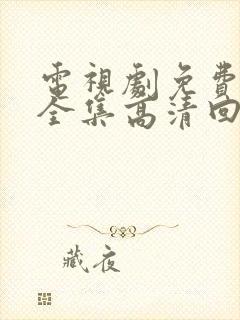 電視劇免費
全集高清回
藏夜